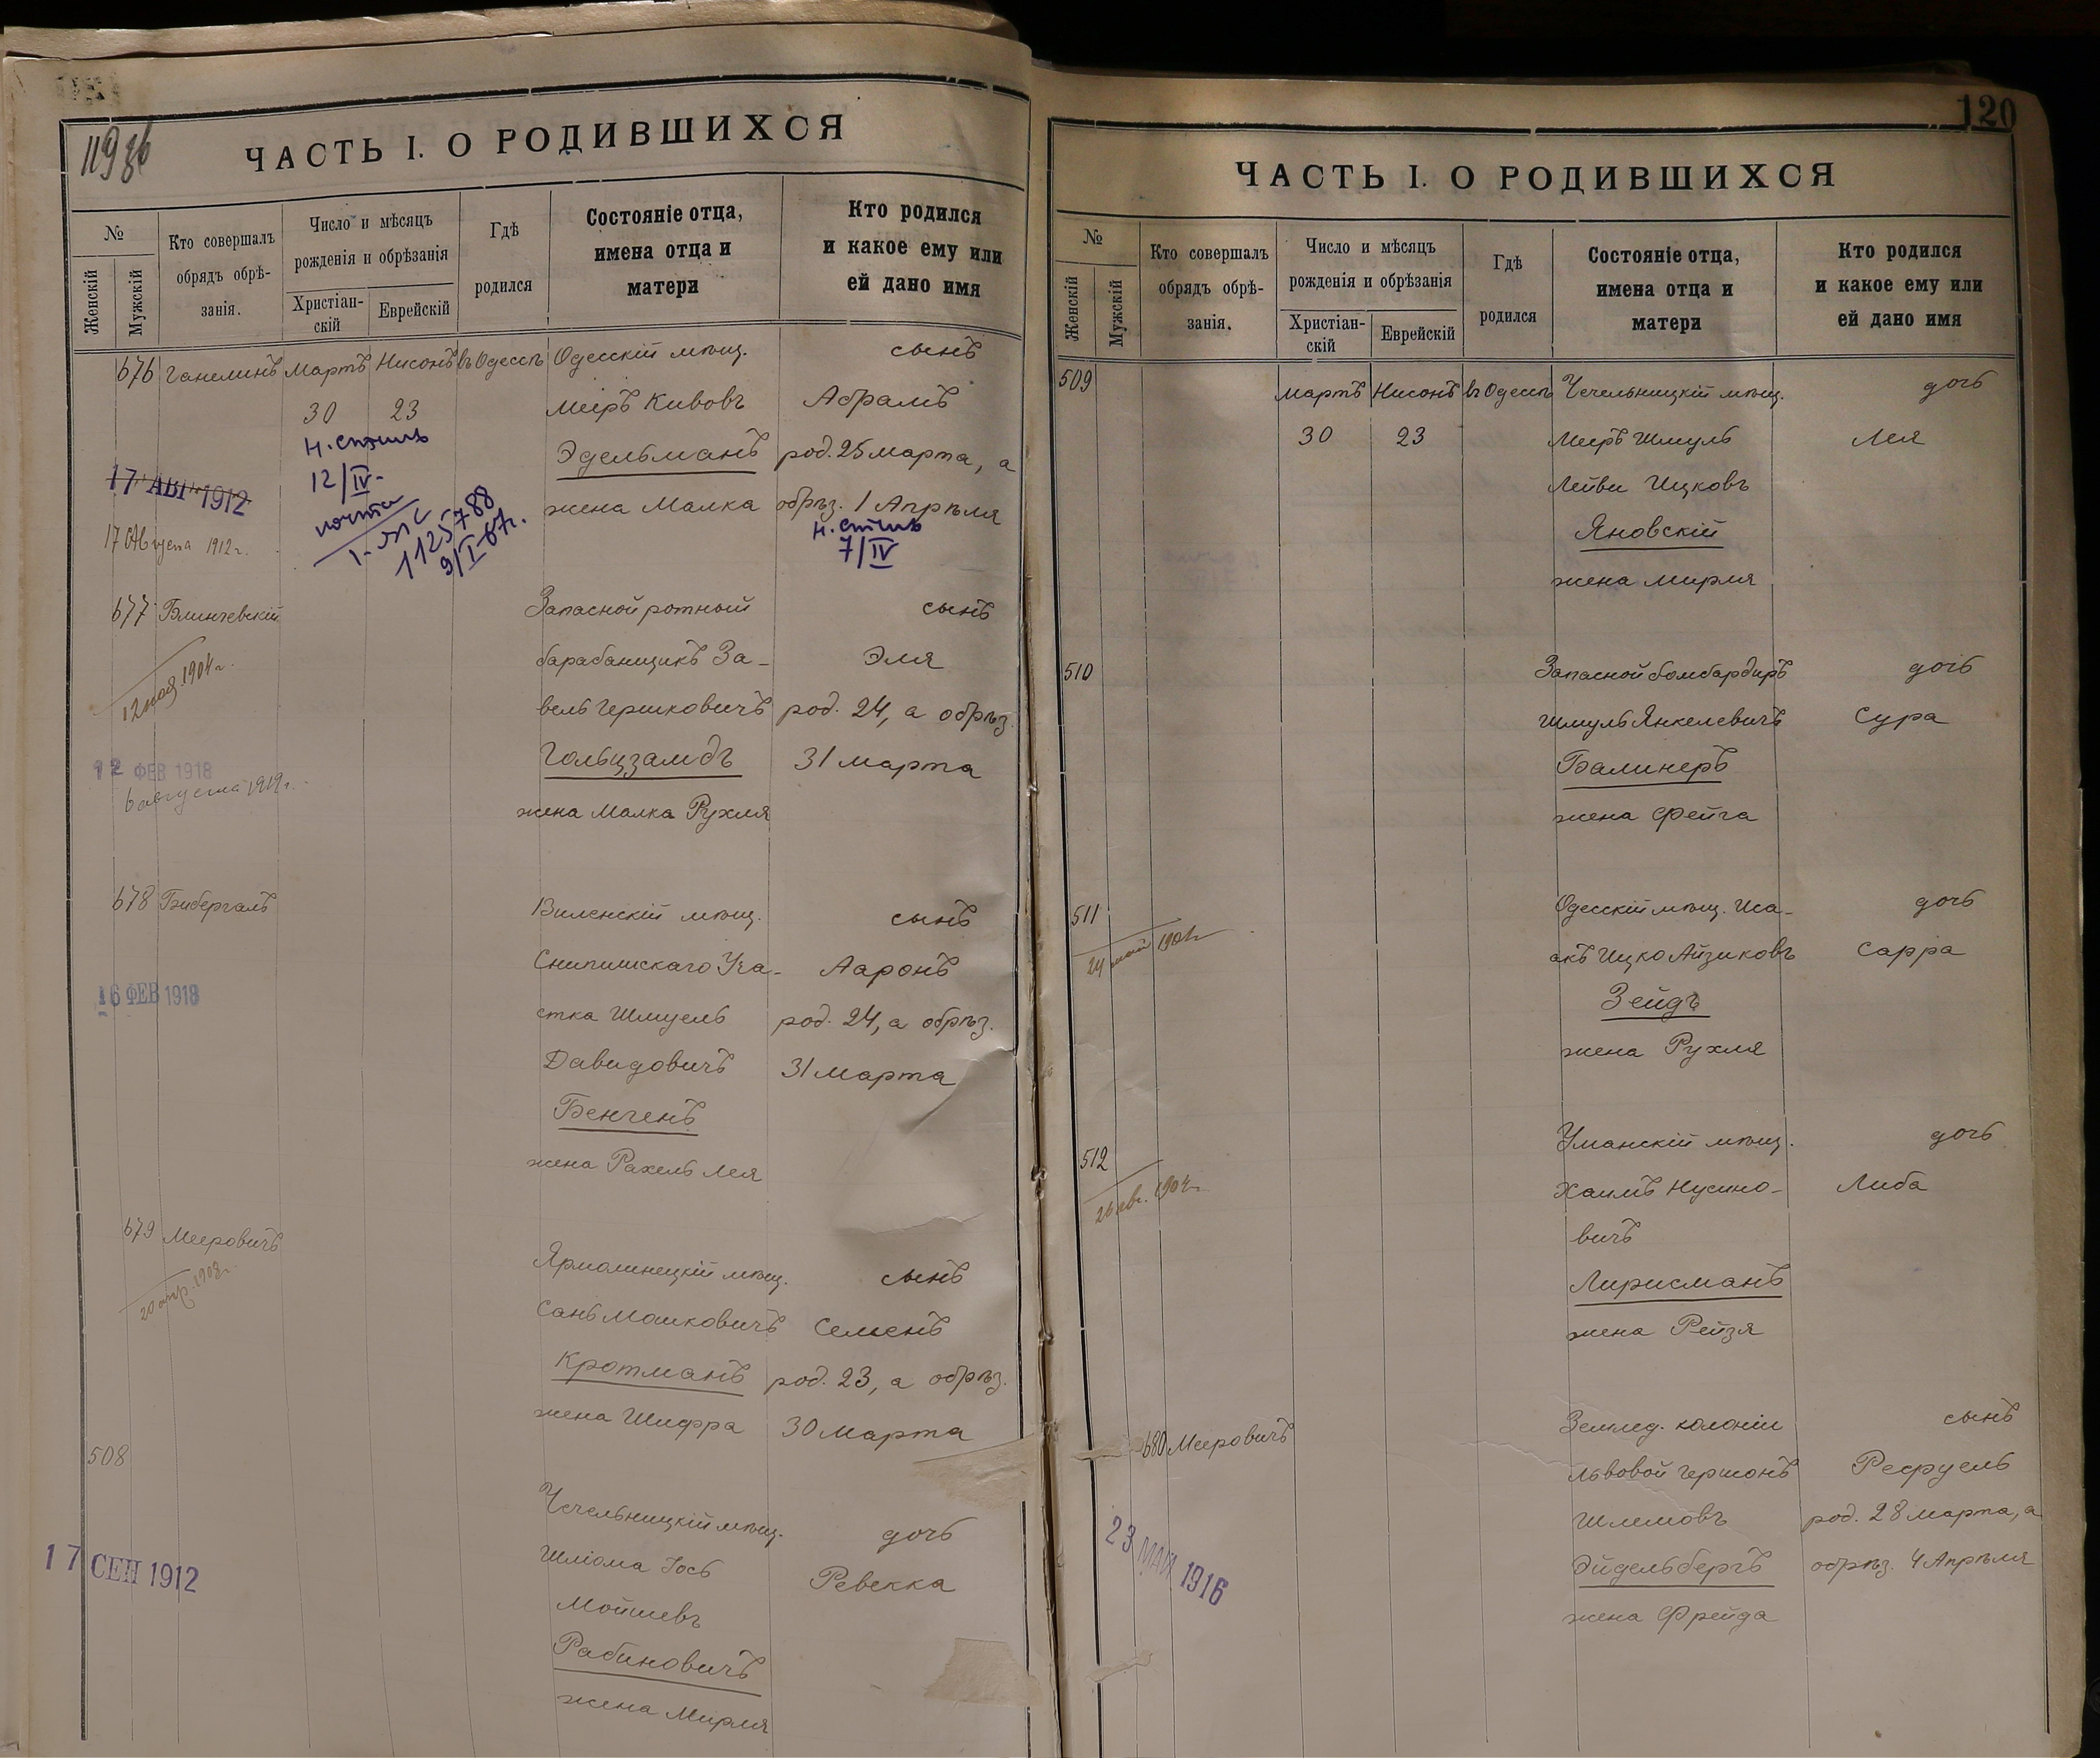 119 об
ЧАСТЬ I. О РОДИВШИХСЯ
№
Женскій
Мужскій
Кто совершалъ
обрядъ обрѣ-
занія.
Число и мѣсяцъ
рожденія и обрѣзанія
Христіан-
скій
Еврейскій
Гдѣ
родился
Состояніе отца,
имена отца и
матери
Кто родился
и какое ему или
ей дано имя
676 Ганелинъ Мартъ Нисонъ въ Одессѣ Одесскій мѣщ. сынъ
30 23 Меіръ Кивовъ Абрамъ
н. стиль
12/IV-
Эдельманъ род. 25 марта, а
17 АВГ 1912
жена Малка обрѣз. 1 Апрѣля
н. стиль
7/IV
17 Августа 1912 г.
1125788
9/I-67г.
677 Блинчевскій Запасной ротный сынъ
барабанщикъ За- Эля
12 ноя. 1904 г.
вель Гершковичъ род. 24, а обрѣз.
Гольцзамдъ 31 марта
12 ФЕВ 1918
6 августа 1919 г.
жена Малка Рухля
678 Бибергалъ Виленскій мѣщ. сынъ
Снипишскаго Уча- Ааронъ
16 ФЕВ 1918
стка Шмуель род. 24, а обрѣз.
Давидовичъ 31 марта
Бенченъ
жена Рахель Лея
679 Мееровичъ Ярмолинецкій мѣщ. сынъ
20 апр. 1902 г.
Сань Мошковичъ Семенъ
Кротманъ род. 23, а обрѣз.
жена Шифра 30 марта
508
Чечельницкій мѣщ. дочь
17 СЕН 1912
Шліома Іось Ревекка
Мойшевъ
Рабиновичъ
жена Мирля
120
ЧАСТЬ I. О РОДИВШИХСЯ
№
Женскій
Мужскій
Кто совершалъ
обрядъ обрѣ-
занія.
Число и мѣсяцъ
рожденія и обрѣзанія
Христіан-
скій
Еврейскій
Гдѣ
родился
Состояніе отца,
имена отца и
матери
Кто родился
и какое ему или
ей дано имя
509 Мартъ Нисонъ въ Одессѣ Чечельницкій мѣщ. дочь
30 23 Меіръ Шмуль Лея
Лейви Ицковъ
Яновскій
жена Мирля
510 Запасной бомбардиръ дочь
Шмуль Янкелевичъ Сура
Балинеръ
жена Фейга
511 Одесскій мѣщ. Иса- дочь
24 май 1904 г.
акъ Ицко Айзиковъ Сарра
Зейдъ
жена Рухля
512 Уманскій мѣщ. дочь
Хаимъ Нусино- Либа
вичъ
Лирисманъ
жена Рейзя
680 Мееровичъ Землед. колоніи сынъ
Львовой Гершонъ Рефуель
23 МАЙ 1916
Шлемовъ род. 28 марта, а
Эйдельбергъ обрѣз. 4 Апрѣля
жена Фрейда